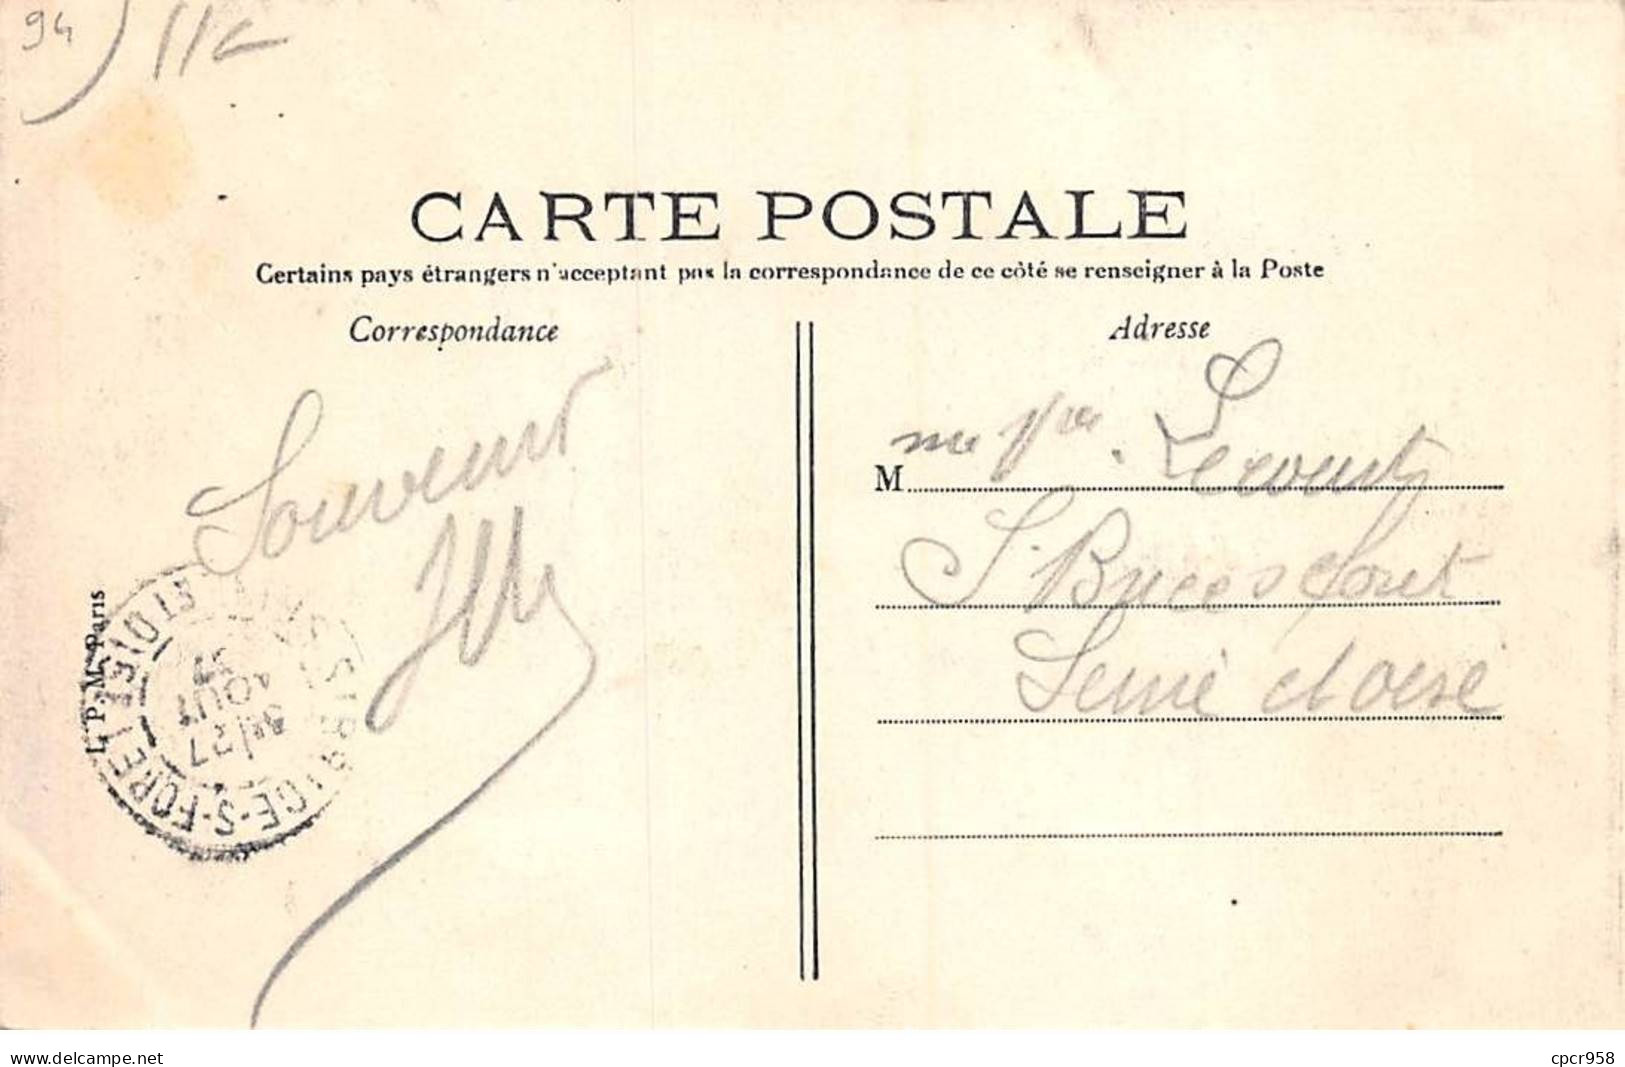 94
CARTE POSTALE
Certains pays étrangers n'acceptant pas la correspondance de ce côté se renseigner à la Poste
Correspondance
Adresse
Souvenir
M
S. Brice s foret
Seine et oise
L. P. M. Paris
ST BRICE-S-FORET
SEINE-ET-OISE
27
AOUT
www.delcampe.net
cpcr958